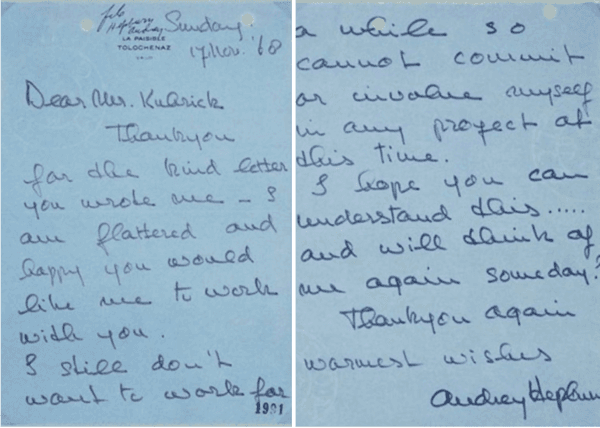 Hepburn
Sunday.
LA PAISIBLE
TOLOCHENAZ
VAUD
17 Nov. '68
Dear Mr. Kubrick
Thankyou
for the kind letter
you wrote me – I
am flattered and
happy you would
like me to work
with you.
I still don't
want to work for
1991
a while so
cannot commit
or involve myself
in any project at
this time.
I hope you can
understand this.....
and will think of
me again someday?
Thankyou again
warmest wishes
Audrey Hepburn